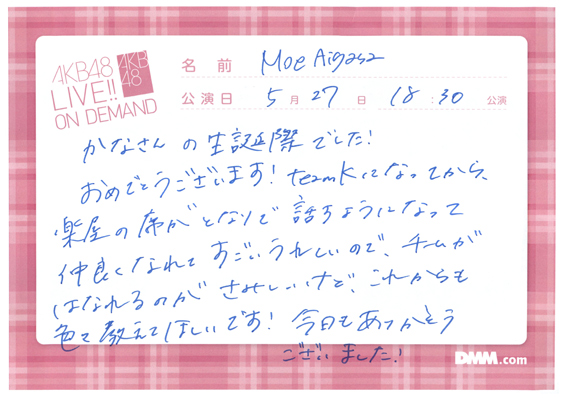 AKB48
LIVE!!
ON DEMAND
AKB
48
名前 Moe Aigasa
公演日 5月27日 18:30公演
かなさんの生誕際でした!
おめでとうございます! teamKになってから、
楽屋の席がとなりで話すようになって
仲良くなれてすごいうれしいので、チームが
はなれるのがさみしいけど、これからも
色々教えてほしいです! 今日もありがとう
ございました!
DMM.com